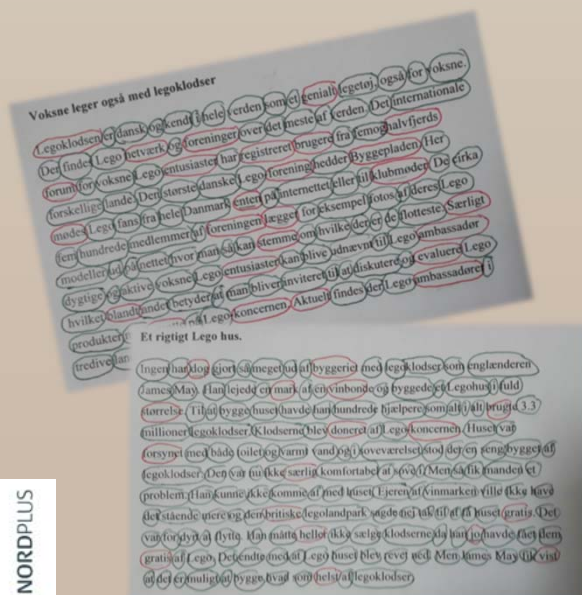 Voksne leger også med legoklodser
Legoklodsen er dansk og kendt i hele verden som et genialt legetøj, også for voksne.
Der findes Lego netværk og foreninger over det meste af verden. Det internationale
forum for voksne Lego entusiaster har registreret brugere fra femoghalvfjerds
forskellige lande. Den største danske Lego forening hedder Byggepladen. Her
mødes Lego fans fra hele Danmark enten på internettet eller til klubmøder. De cirka
fem hundrede medlemmer af foreningen lægger for eksempel fotos af deres Lego
modeller ud på nettet hvor man så kan stemme om hvilke der er de flotteste. Særligt
dygtige og aktive voksne Lego entusiaster kan blive udnævnt til Lego ambassadør
hvilket blandt andet betyder at man bliver inviteret til at diskutere og evaluere Lego
produkter på Legokoncernen. Aktuelt findes der Lego ambassadører i
tredive lan
Et rigtigt Lego hus.
Ingen har dog gjort så meget ud af byggeriet med legoklodser som englænderen
James May. Han lejede en mark af en vinbonde og byggede et Legohus i fuld
størrelse. Til at bygge huset havde han hundrede hjælpere som alt i alt brugte 3.3
millioner legoklodser. Klodserne blev doneret af Lego koncernen. Huset var
forsynet med både toilet og varmt vand og i soveværelset stod der en seng bygget af
legoklodser. Den var nu ikke særlig komfortabel at sove i. Men så fik manden et
problem. Han kunne ikke komme af med huset. Ejeren af vinmarken ville ikke have
det stående mere og den britiske legolandpark sagde nej tak til at få huset gratis. Det
var for dyrt at flytte. Han måtte heller ikke sælge klodserne da han jo havde fået dem
gratis af Lego. Det endte med at Lego huset blev revet ned. Men James May fik vist
at det er muligt at bygge hvad som helst af legoklodser.
NORDPLUS